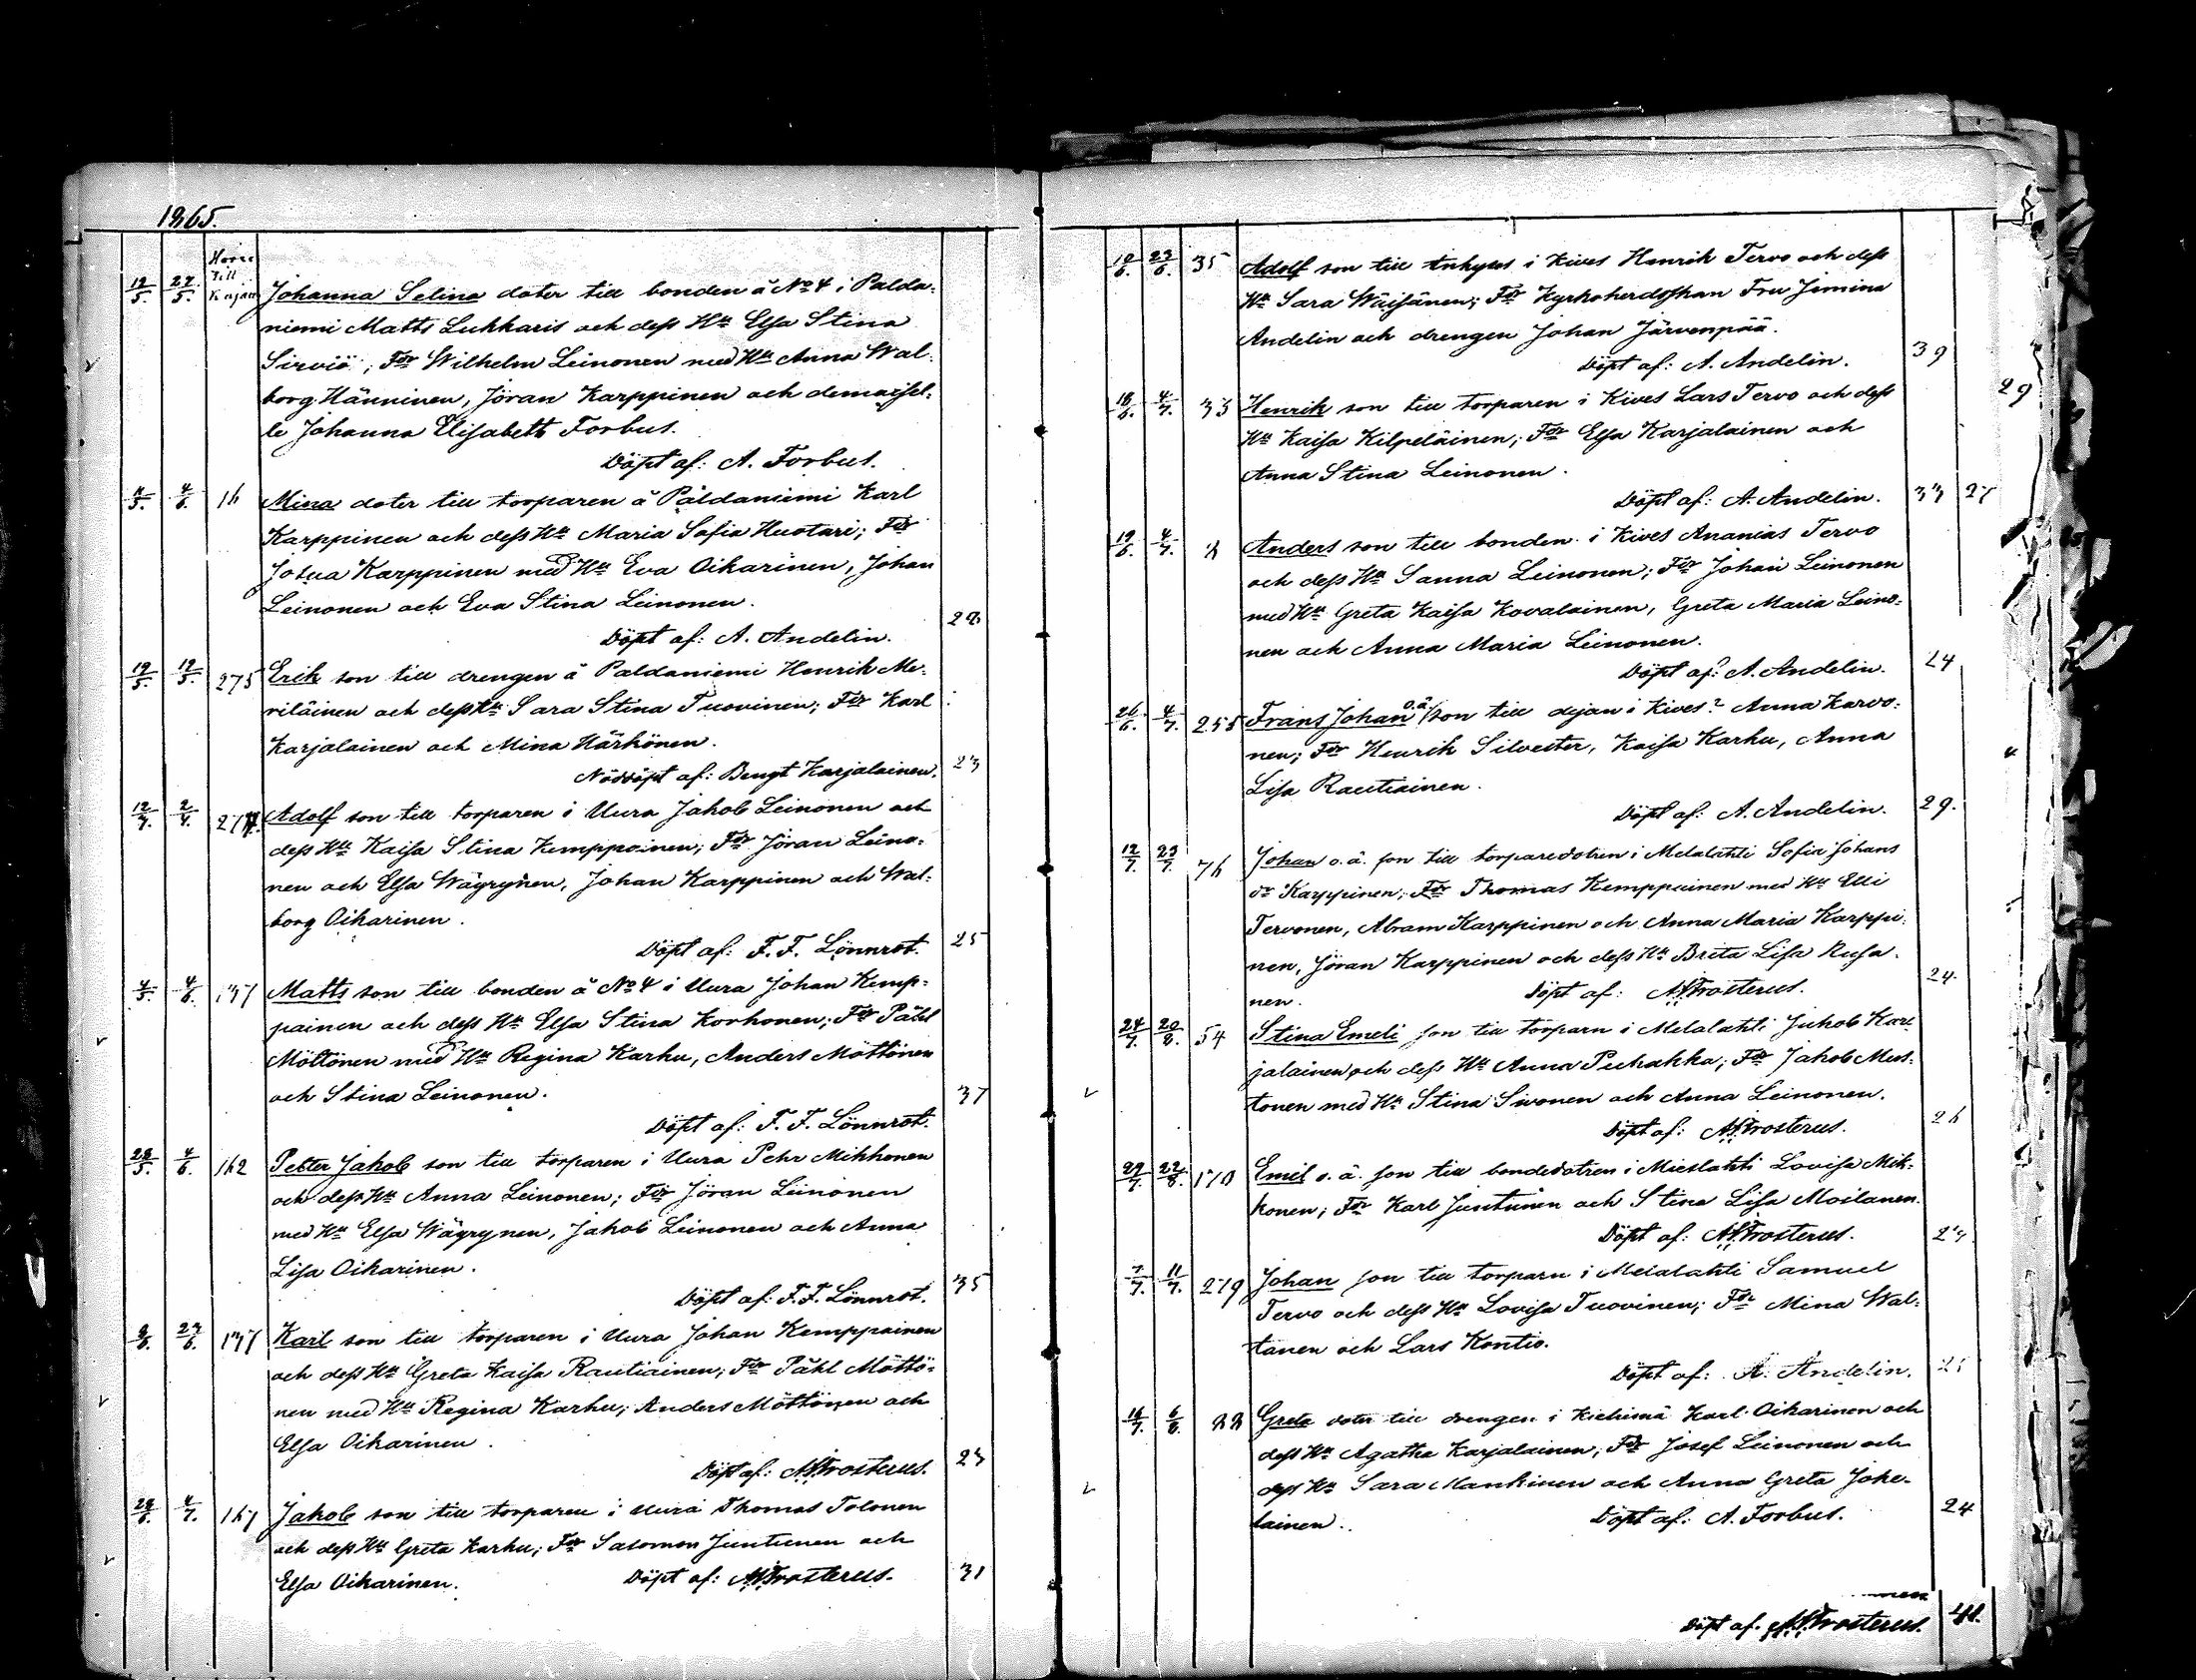 1865.
Hörer
till
Kajan
12/5. 27/5. Johanna Selina doter till bonden å No 4 i Palda-
niemi Matts Lukkaris och dess Hu Elsa Stina
Sirviö; Fdr Wilhelm Leinonen med Hu Anna Wal-
borg Hänninen, Jöran Karppinen och demoisel-
le Johanna Elisabeth Forbus.
Döpt af: A. Forbus.
4/6. 16 Mina doter till torparen å Paldaniemi Karl
Karppinen och dess Hu Maria Sofia Huotari; Fdr
Josua Karppinen med Hu Eva Oikarinen, Johan
Leinonen och Eva Stina Leinonen.
Döpt af: A. Andelin. 28
19/5. 19/5. 275 Erik son till drengen å Paldaniemi Henrik Me-
riläinen och dess Hu Sara Stina Tuovinen; Fdr Karl
Karjalainen och Mina Härkönen.
Nöddöpt af: Bengt Karjalainen. 23
Adolf son till torparen i Uura Jakob Leinonen och
dess Hu Kaisa Stina Kemppainen; Fdr Jöran Leino-
nen och Elsa Wäyrynen, Johan Karppinen och Wal-
borg Oikarinen.
Döpt af: F. F. Lönnrot. 25
4/5. 4/6. 137 Matts son till bonden å No 4 i Uura Johan Kemp-
painen och dess Hu Elsa Stina Korhonen; Fdr Påhl
Möttönen med Hu Regina Karhu, Anders Möttönen
och Stina Leinonen. 37
Döpt af: F. F. Lönnrot.
28/5. 4/6. 162 Petter Jakob son till torparen i Uura Pehr Mikkonen
och dess Hu Anna Leinonen; Fdr Jöran Leinonen
med Hu Elsa Wäyrynen, Jakob Leinonen och Anna
Lisa Oikarinen.
Döpt af: F. F. Lönnrot. 35
24/6. 137 Karl son till torparen i Uura Johan Kemppainen
och dess Hu Greta Kaisa Rautiainen; Fdr Påhl Möttö-
nen med Hu Regina Karhu, Anders Möttönen och
Elsa Oikarinen.
Döpt af: Frosterus. 23
28/6. 4/7. 167 Jakob son till torparen i Uura Thomas Tolonen
och dess Hu Greta Karhu; Fdr Salomon Juntunen och
Elsa Oikarinen. Döpt af: Frosterus. 31
10/6. 23/6. 35 Adolf son till inhyses i Kives Henrik Tervo och dess
Hu Sara Wäisänen; Fdr Kyrkoherdsfrun Fru Jemina
Andelin och drengen Johan Järvenpää.
Döpt af: A. Andelin. 39
18/6. 4/7. 33 Henrik son till torparen i Kives Lars Tervo och dess
Hu Kaisa Kilpeläinen; Fdr Elsa Karjalainen och
Anna Stina Leinonen.
Döpt af: A. Andelin. 33 27
29
19/6. 4/7. Anders son till bonden i Kives Ananias Tervo
och dess Hu Sanna Leinonen; Fdr Johan Leinonen
med Hu Greta Kaisa Kovalainen, Greta Maria Leino-
nen och Anna Maria Leinonen.
Döpt af: A. Andelin. 24
26/6. 4/7. 255 Frans Johan o.ä. son till dejan i Kives? Anna Karvo-
nen; Fdr Henrik Silvester, Kaisa Karhu, Anna
Lisa Rautiainen.
Döpt af: A. Andelin. 29.
12/7. 23/7. 76 Johan o.ä. son till torparedotren i Melalahti Sofia Johans
dr Karppinen; Fdr Thomas Kemppainen med Hu Elli
Tervonen, Abram Karppinen och Anna Maria Karppi-
nen, Jöran Karppinen och dess Hu Brita Lisa Rusa-
nen. Döpt af: Frosterus. 24
24/7. 20/8. 54 Stina Emeli son till torparn i Melalahti Jakob Kar-
jalainen och dess Hu Anna Puhakka; Fdr Jakob Mus-
tonen med Hu Stina Sivonen och Anna Leinonen.
Döpt af: Frosterus. 26
29/7. 22/8. 170 Emil o.ä. son till bondedotren i Mieslahti Lovisa Mik-
konen; Fdr Karl Juntunen och Stina Lisa Moilanen.
Döpt af: Frosterus. 23
7/7. 11/7. 279 Johan son till torparn i Melalahti Samuel
Tervo och dess Hu Lovisa Tuovinen; Fdr Mina Wal-
tanen och Lars Kontio.
Döpt af: A. Andelin. 25
16/7. 6/8. 22 Greta doter till drengen i Kiehimä Karl Oikarinen och
dess Hu Agatha Karjalainen; Fdr Josef Leinonen och
dess Hu Sara Mankinen och Anna Greta Joke-
lainen. Döpt af: A. Forbus. 24
nen
Döpt af. Frosterus. 41.